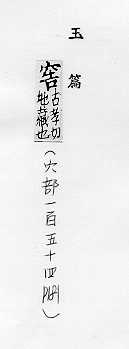 玉篇
窖
古孝切
地藏也
(穴部一百五十四)